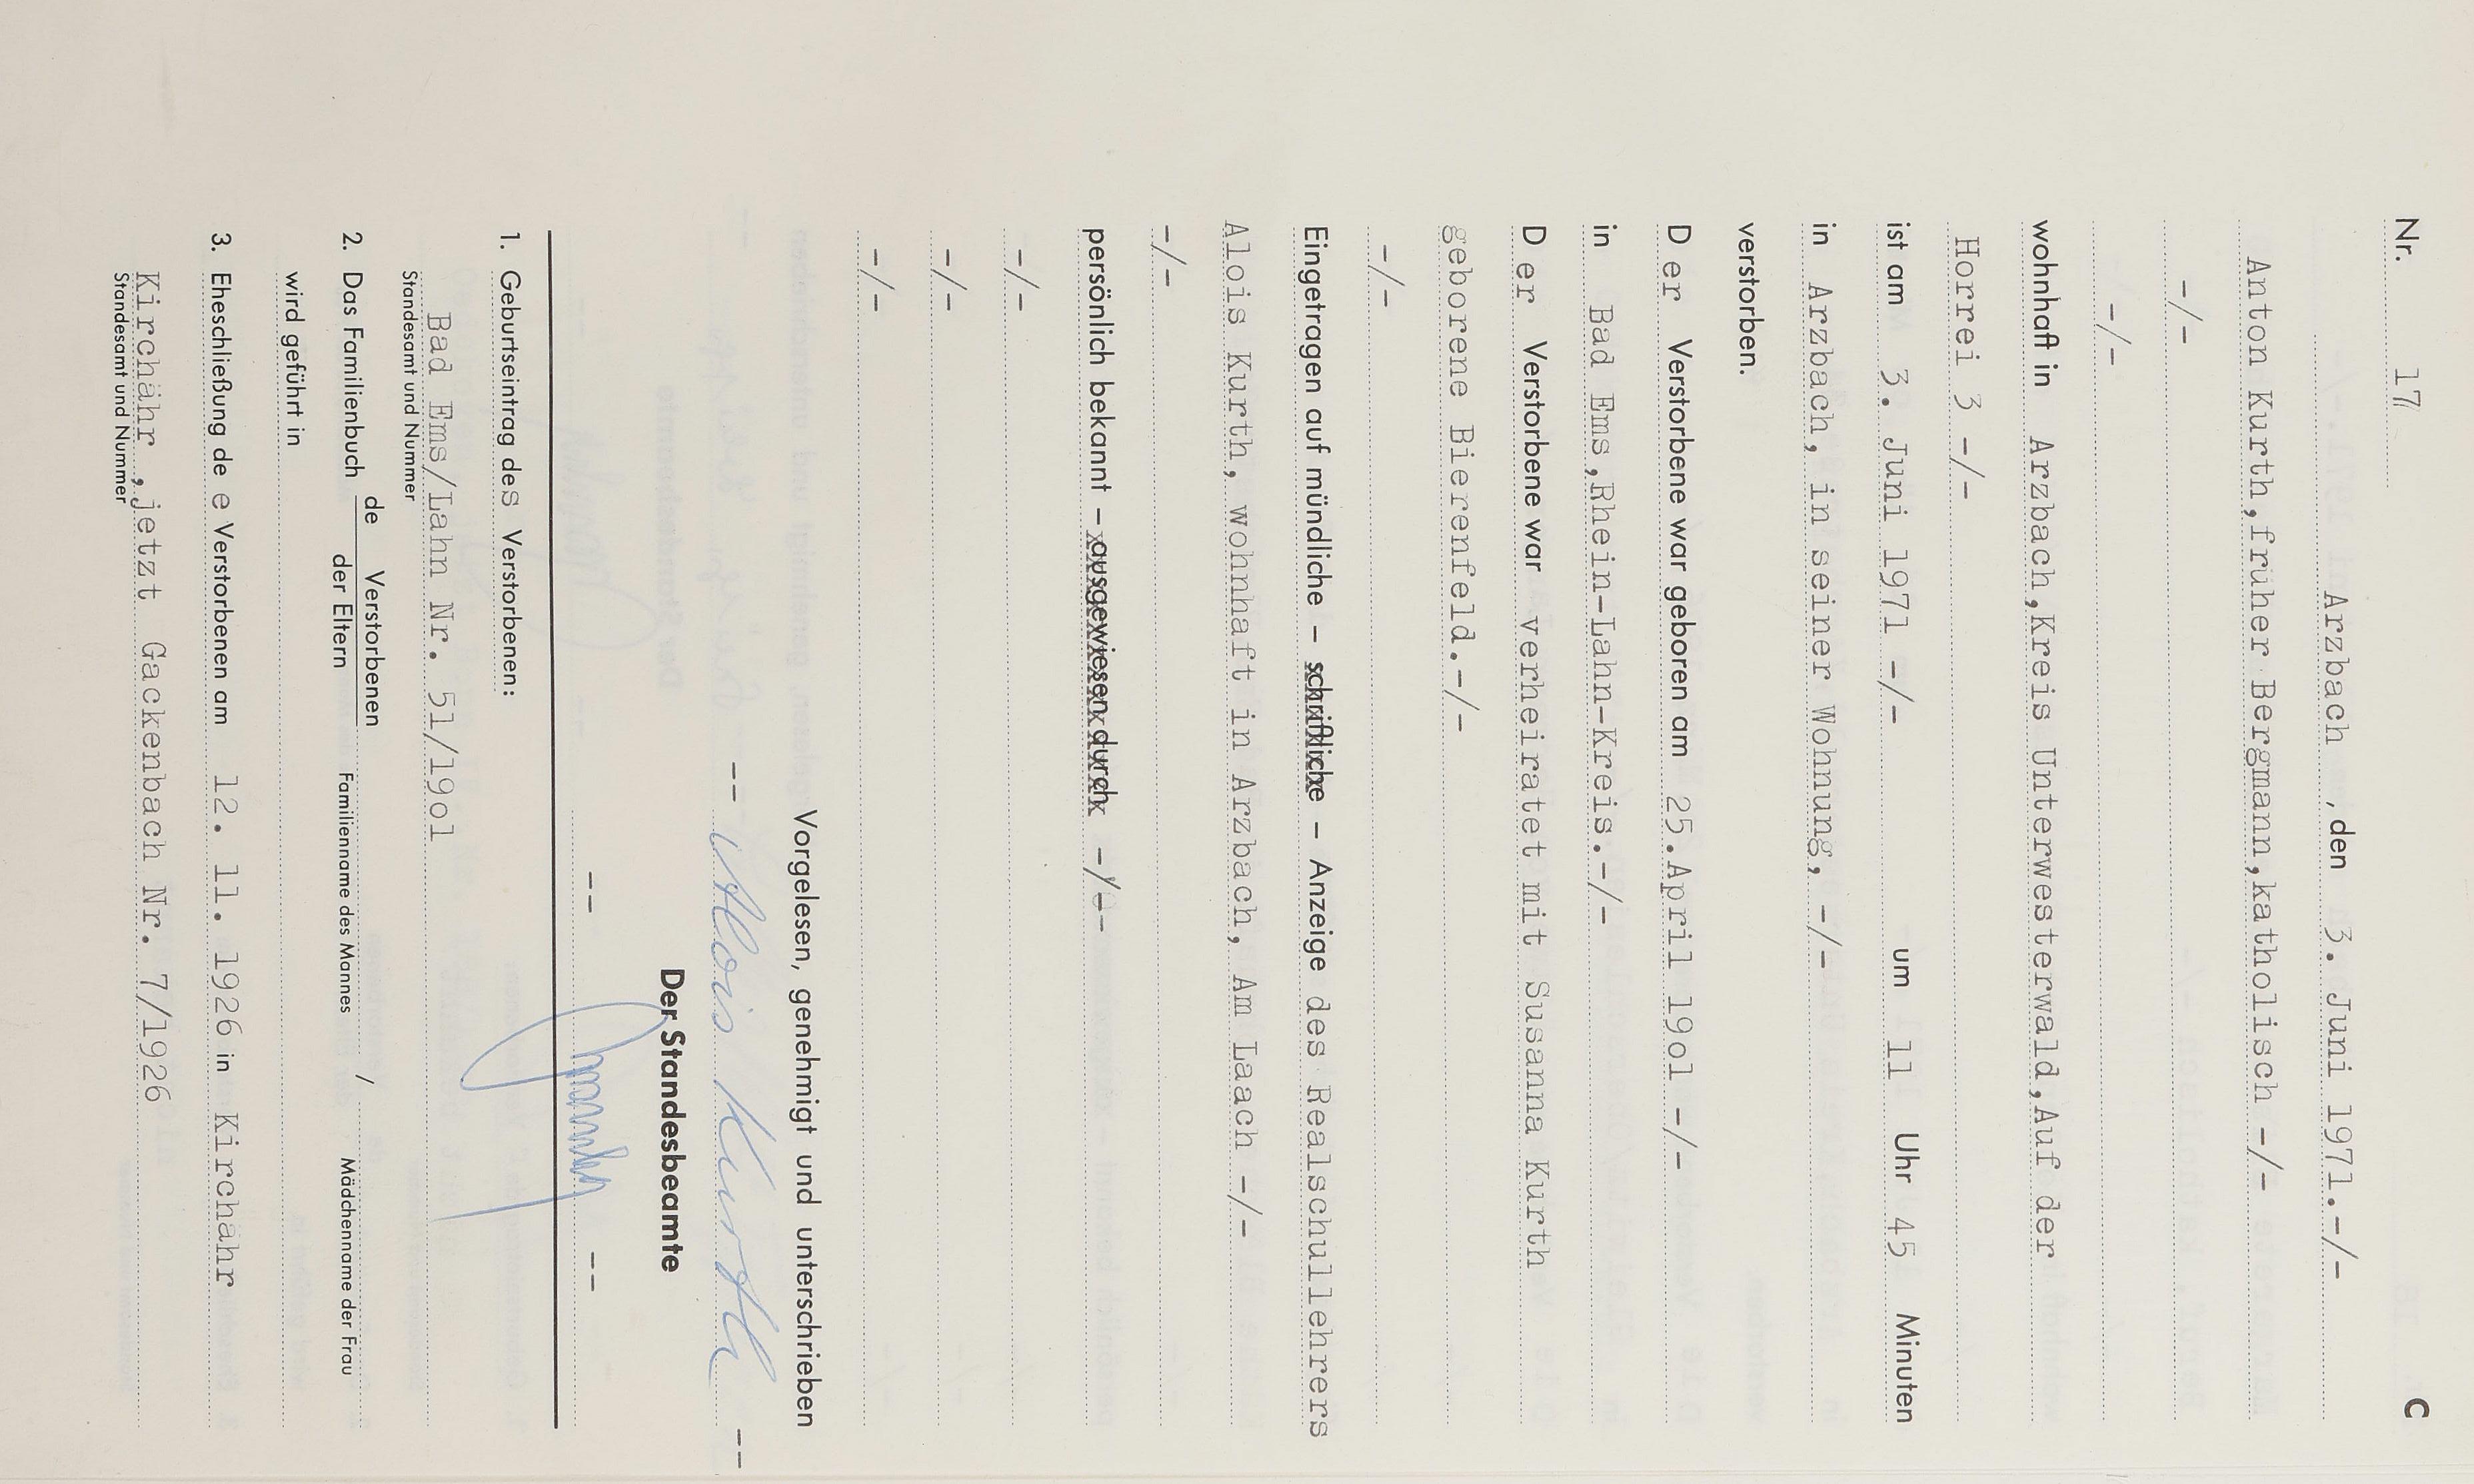 Nr. 17 C
Arzbach, den 3. Juni 1971.-/-
Anton Kurth,früher Bergmann,katholisch -/-
-/-
-/-
wohnhaft in Arzbach,Kreis Unterwesterwald,Auf der
Horrei 3 -/-
ist am 3. Juni 1971 -/- um 11 Uhr 45 Minuten
in Arzbach, in seiner Wohnung, -/-
verstorben.
D er Verstorbene war geboren am 25.April 19o1 -/-
in Bad Ems,Rhein-Lahn-Kreis.-/-
D er Verstorbene war verheiratet mit Susanna Kurth
geborene Bierenfeld.-/-
-/-
Eingetragen auf mündliche – schriftliche – Anzeige des Realschullehrers
Alois Kurth, wohnhaft in Arzbach, Am Laach -/-
-/-
persönlich bekannt – ausgewiesen durch -/--
-/-
-/-
-/-
Vorgelesen, genehmigt und unterschrieben
-- Alois Kurth --
Der Standesbeamte
-- --
1. Geburtseintrag des Verstorbenen:
Bad Ems/Lahn Nr. 51/19o1
Standesamt und Nummer
2. Das Familienbuch de Verstorbenen / der Eltern Familienname des Mannes / Mädchenname der Frau
wird geführt in
3. Eheschließung de e Verstorbenen am 12. 11. 1926 in Kirchähr
Kirchähr ,jetzt Gackenbach Nr. 7/1926
Standesamt und Nummer